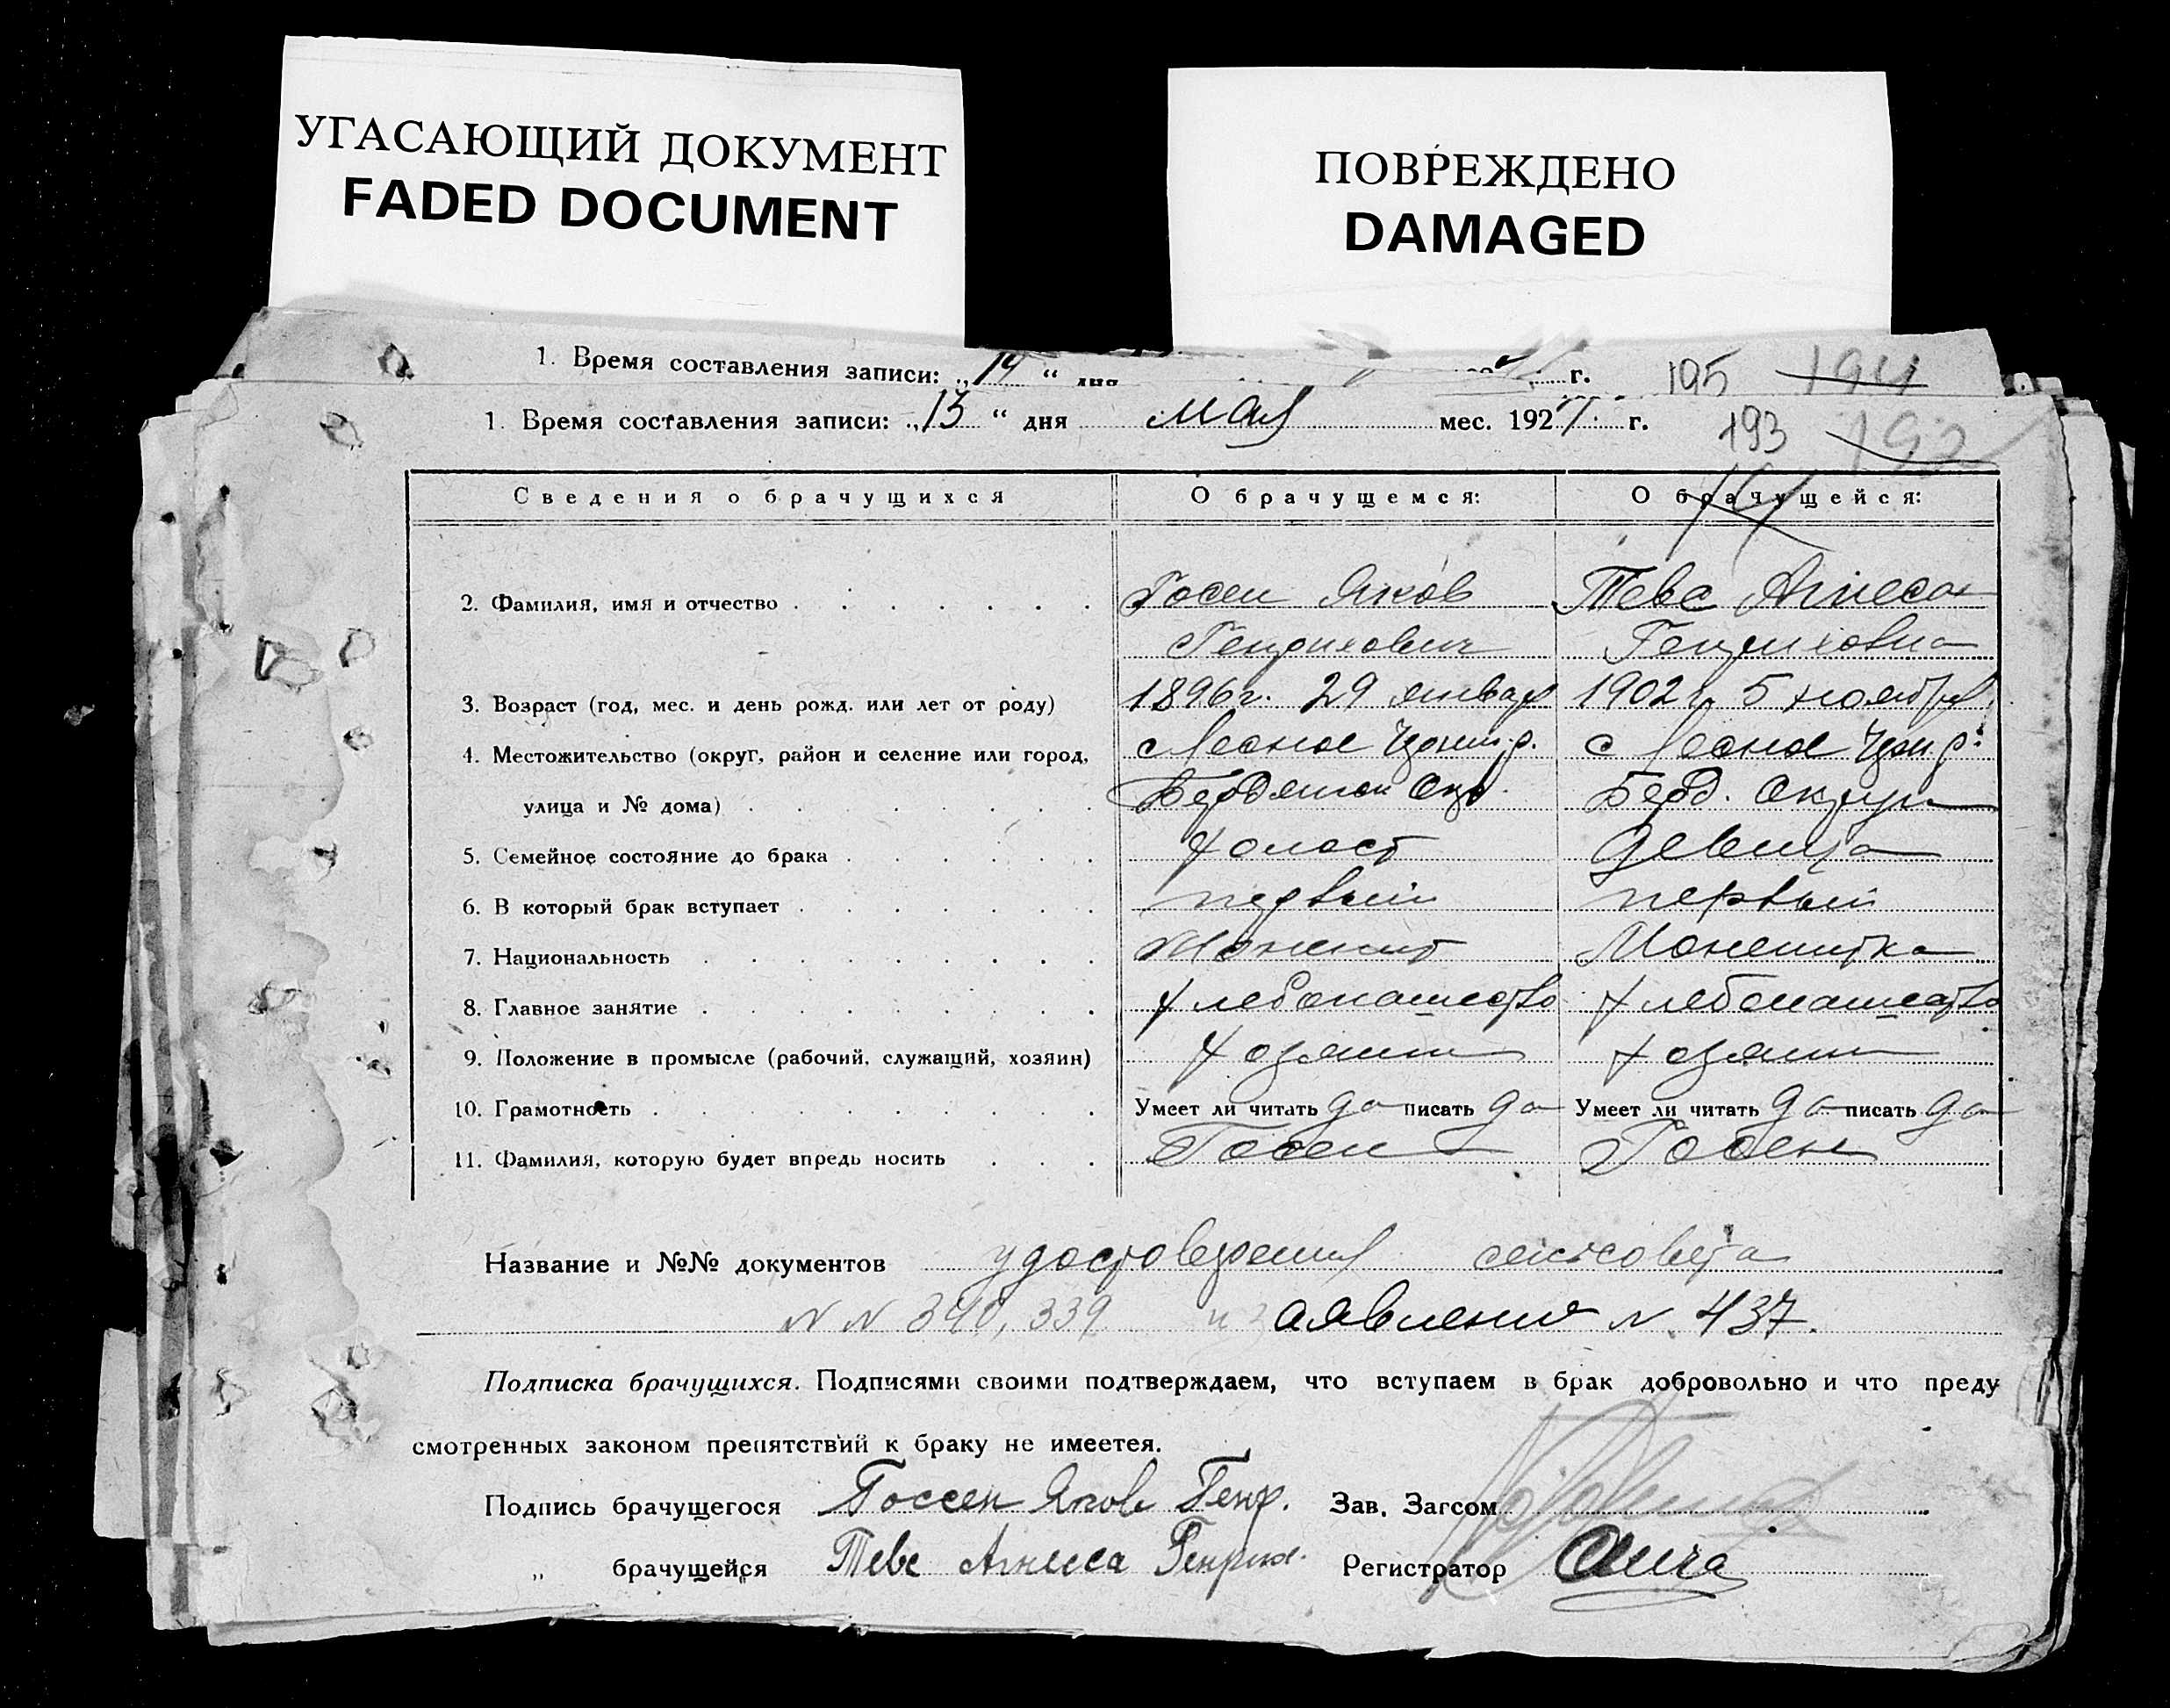 УГАСАЮЩИЙ ДОКУМЕНТ
FADED DOCUMENT
ПОВРЕЖДЕНО
DAMAGED
1. Время составления записи: „14“ дня г. 195 194
1. Время составления записи: „13“ дня мая мес. 1927 г. 193 192
Сведения о брачущихся О брачущемся: О брачущейся:
2. Фамилия, имя и отчество Госен Яков Тевс Агнеса
Генрихович Генриховна
3. Возраст (год, мес. и день рожд. или лет от роду) 1896 г. 29 января 1902 г. 5 ноября
4. Местожительство (округ, район и селение или город, с Лесное р. с Лесное р.
улица и № дома) Бердянск Окр. Берд. Округа
5. Семейное состояние до брака холост девица
6. В который брак вступает первый первый
7. Национальность Моненит Монемитка
8. Главное занятие хлебопашество хлебопашество
9. Положение в промысле (рабочий, служащий, хозяин) хозяин хозяин
10. Грамотность Умеет ли читать да писать да Умеет ли читать да писать да
11. Фамилия, которую будет впредь носить Госен Госен
Название и №№ документов удостоверения сельсовета
N N 340, 339 и заявление N 437.
Подписка брачущихся. Подписями своими подтверждаем, что вступаем в брак добровольно и что преду
смотренных законом препятствий к браку не имеетея.
Подпись брачущегося Госсен Яков Генр. Зав. Загсом
„ брачущейся Тевс Агнесса Генрих. Регистратор